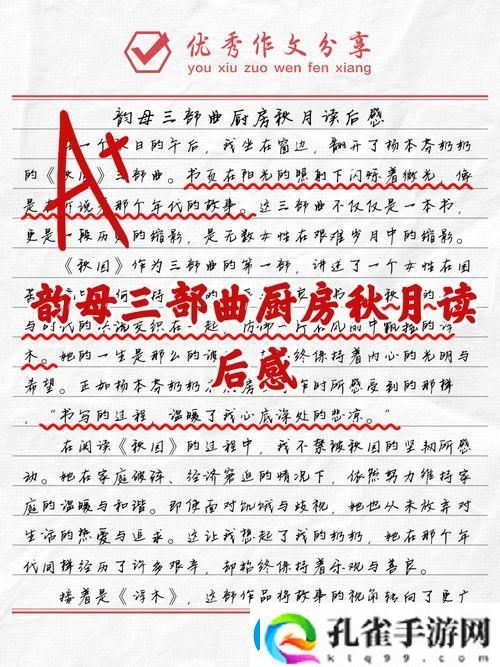 优秀作文分享
you xiu zuo wen fen xiang
韵母三部曲厨房秋月读后感
A+
一个 日的午后,我坐在窗边,翻开了杨本芬奶奶
的《秋园》三部曲。书页在阳光的照射下闪烁着微光,像
是在诉说 那个年代的故事。这三部曲不仅仅是一本书,
更是一段历史的缩影,是无数女性在艰难岁月中的缩影。
《秋园》作为三部曲的第一部,讲述了一个女性在困
韵母三部曲厨房秋月读
后感
木。她的一生是那么的 终保持着内心的光明与
希望。正如杨本芬奶奶 房 作时所感受到的那样
,“书写的过程,温暖了我心底深处的悲凉。”
在阅读《秋园》的过程中,我不禁被秋园的坚韧所感
动。她在家庭破碎、经济窘迫的情况下,依然努力维持家
庭的温暖与和谐。即便面对饥饿与歧视,她也从未放弃对
生活的热爱与追求。这让我想起了我的奶奶,她在那个年
代同样经历了许多艰辛,却始终保持着乐观与善良。
接着是《浮木》,这部作品将故事的视角转向了更广
孔雀手游网
ktq99.com